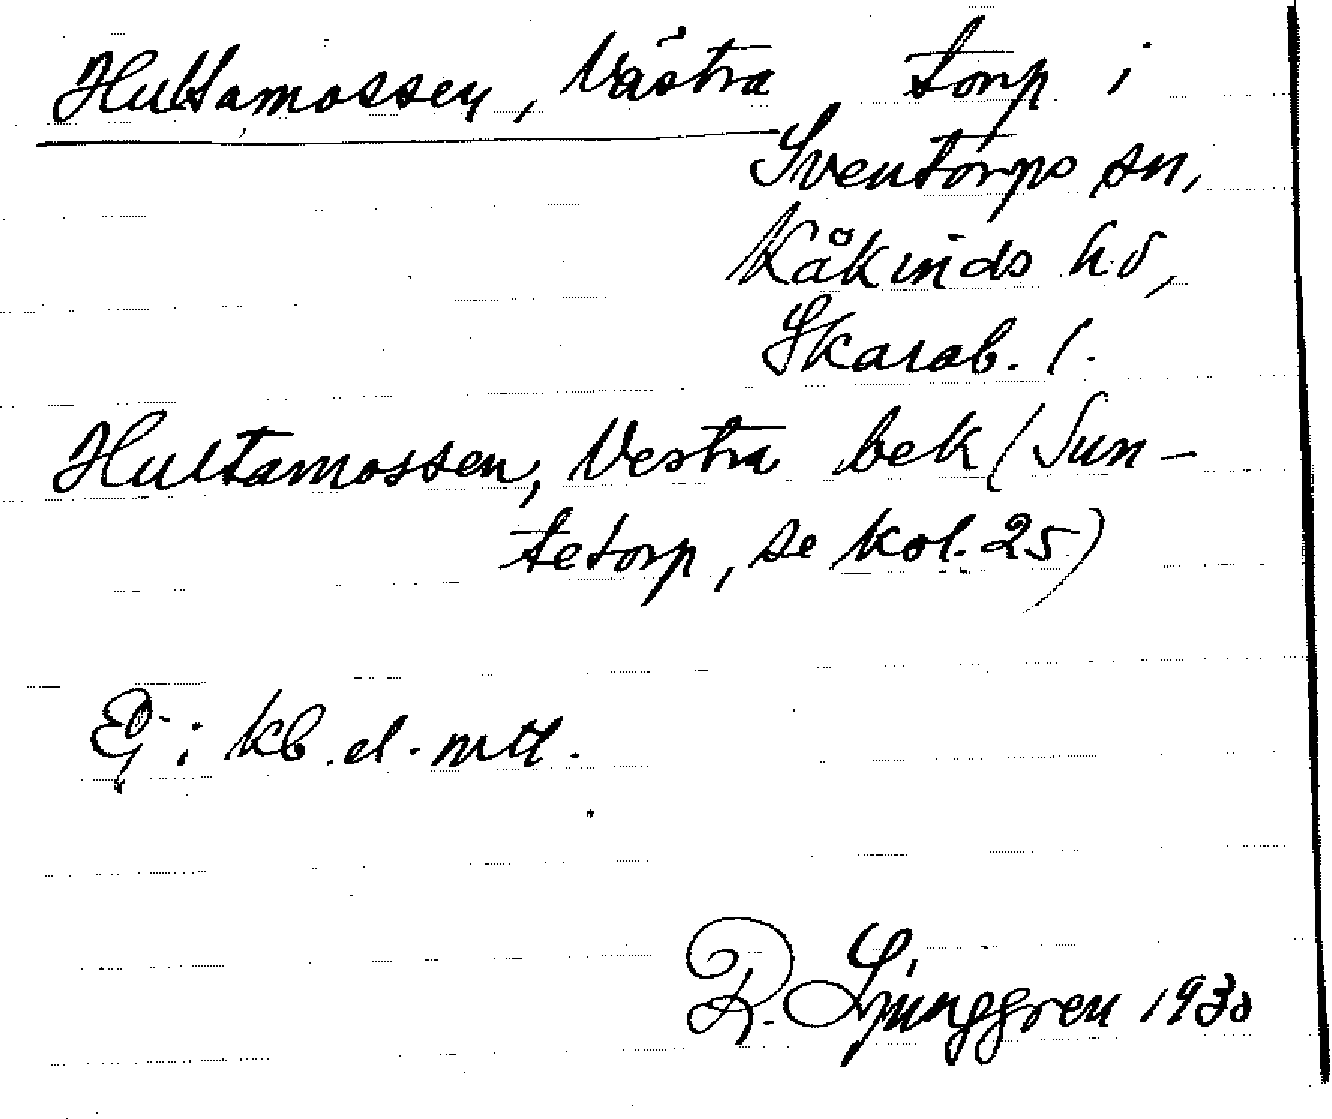 Hultamossen, Västra torp i
Sventorps sn,
Kåkinds hd,
Skarab. l.
Hultamossen, Vestra bek (Sun-
tetorp, se kol. 25)
Ej i kb. el. mtl.
R. Ljunggren 1930